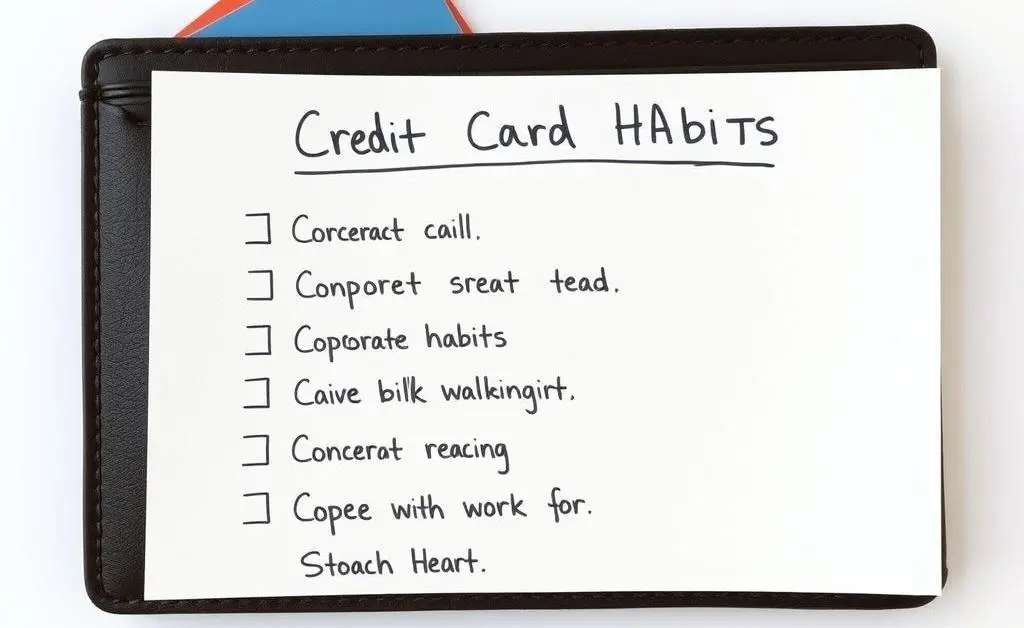 Credit Card HAbiTS
Corceract caill.
Conporet sreat tead.
Coporate habits
Caive bilk walkingirt.
Concerat reacing
Copee with work for.
Stoach Heart.